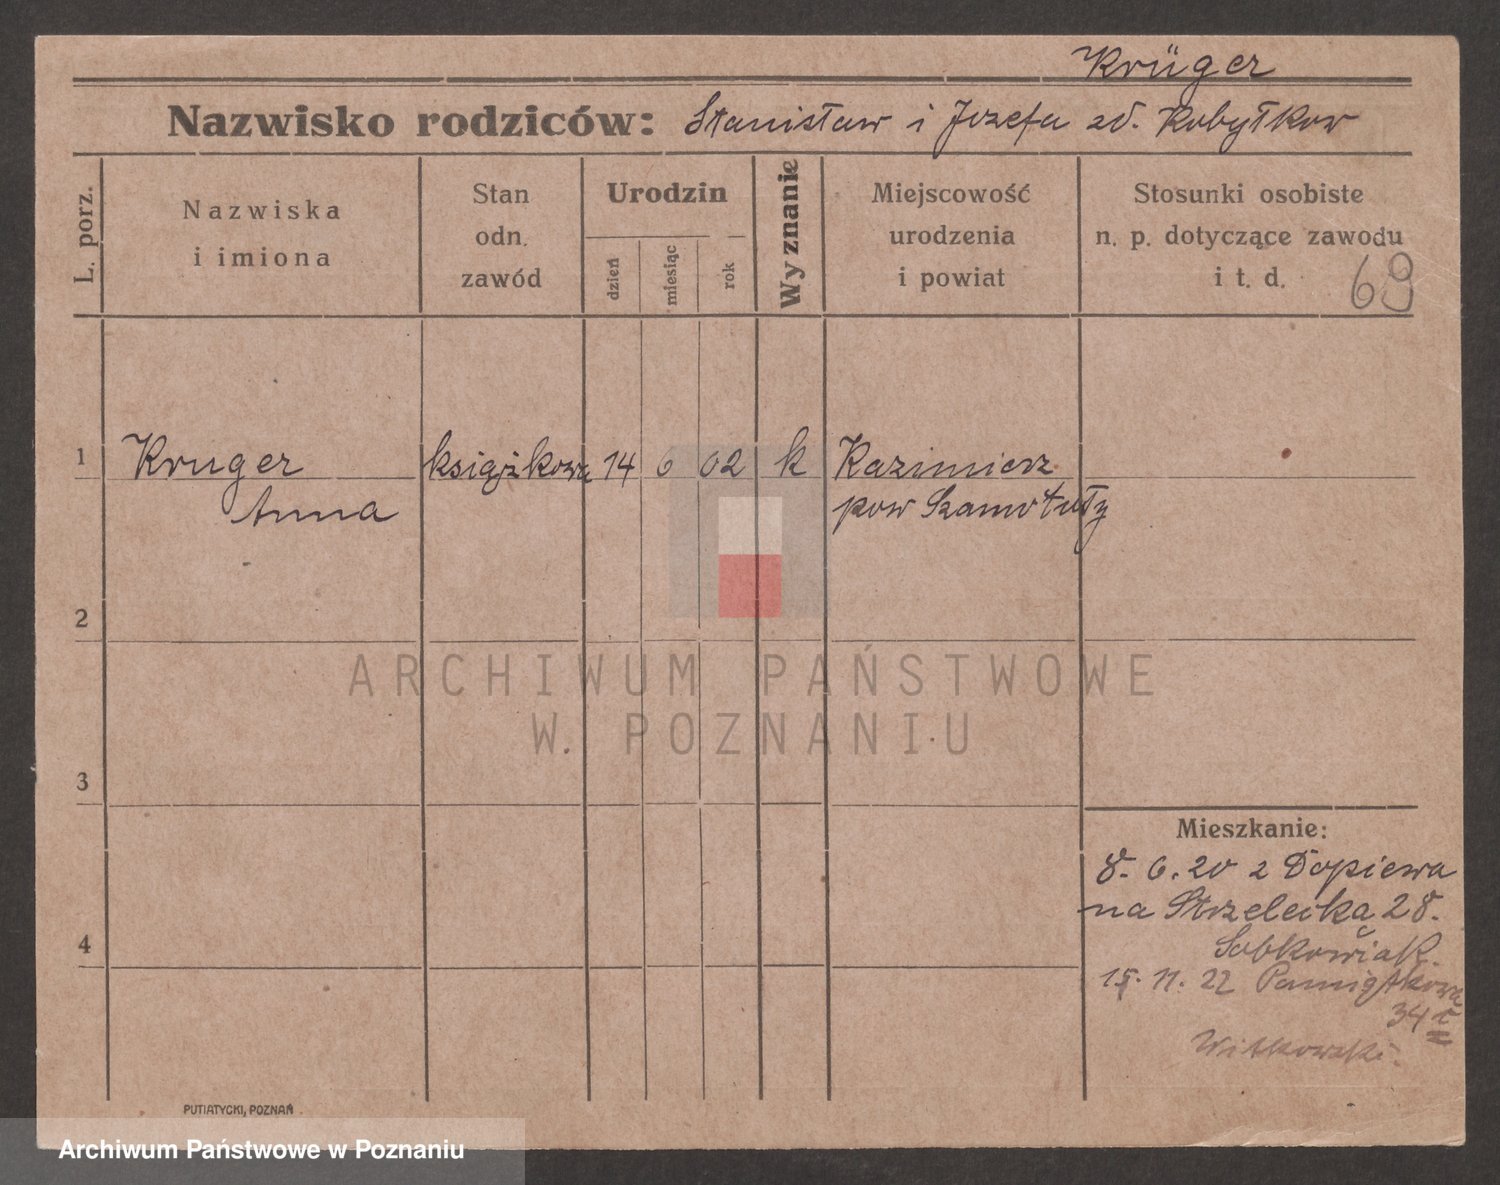 Krüger
Nazwisko rodziców: Stanisław i Jozefa zd. Kobyłkow
L. porz.
Nazwiska
i imiona
Stan
odn.
zawód
Urodzin
dzień
miesiąc
rok
Wyznanie
Miejscowość
urodzenia
i powiat
Stosunki osobiste
n. p. dotyczące zawodu
i t. d.
69
1 Kruger książkowa 14 6 02 k Kazimierz
Anna pow Szamotuły
2
ARCHIWUM PAŃSTWOWE
W POZNANIU
3
Mieszkanie:
8. 6. 20 z Dopiewa
na Strzelecką 28.
4
Sobkowiak.
15. 11. 22 Pamiątkowa
34
Witkowski.
PUTIATYCKI, POZNAŃ
Archiwum Państwowe w Poznaniu